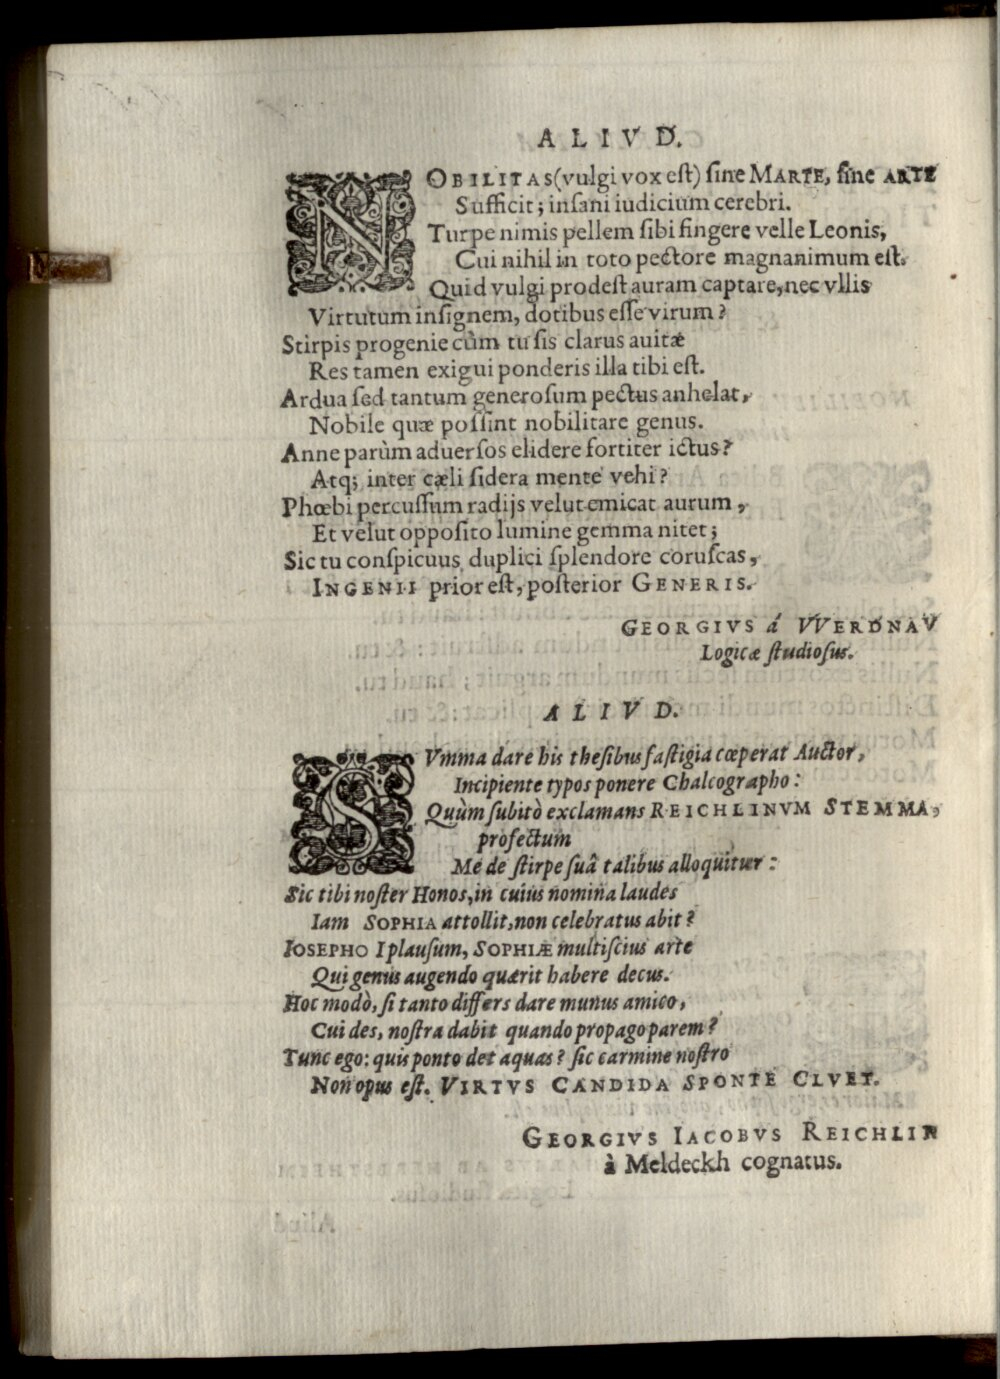 ALIVD.
NOBILITAS (vulgi vox est) sine MARTE, sine ARTE
Sufficit; insani iudicium cerebri.
Turpe nimis pellem sibi fingere velle Leonis,
Cui nihil in toto pectore magnanimum est.
Quid vulgi prodest auram captare, nec vllis
Virtutum insignem, dotibus esse virum?
Stirpis progenie cùm tu sis clarus auitæ
Res tamen exigui ponderis illa tibi est.
Ardua sed tantum generosum pectus anhelat,
Nobile quæ possint nobilitare genus.
Anne parùm aduersos elidere fortiter ictus?
Atq; inter cæli sidera mente vehi?
Phœbi percussum radijs velut emicat aurum,
Et velut opposito lumine gemma nitet;
Sic tu conspicuus duplici splendore coruscas,
INGENII prior est, posterior GENERIS.
GEORGIVS á VVERDNAV
Logicæ studiosus.
ALIVD.
SVmma dare his thesibus fastigia cœperat Auctor,
Incipiente typos ponere Chalcographo:
Quùm subitò exclamans REICHLINVM STEMMA,
profectum
Me de stirpe suâ talibus alloquitur:
Sic tibi noster Honos, in cuius nomina laudes
Iam SOPHIA attollit, non celebratus abit?
IOSEPHO I plausum, SOPHIÆ multiscius arte
Qui genus augendo quærit habere decus.
Hoc modò, si tanto differs dare munus amico,
Cui des, nostra dabit quando propago parem?
Tunc ego: quis ponto det aquas? sic carmine nostro
Non opus est. VIRTVS CANDIDA SPONTE CLVET.
GEORGIVS IACOBVS REICHLIN
à Meldeckh cognatus.